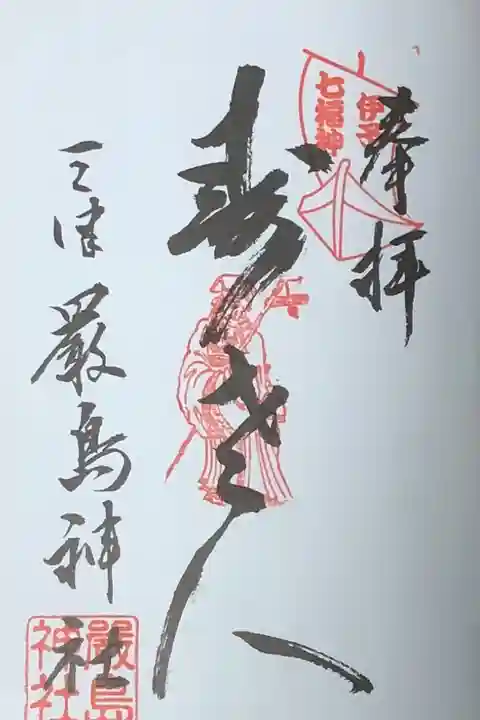 奉拝
伊予
七福神
寿老人
三津
厳島神社
嚴島
神社